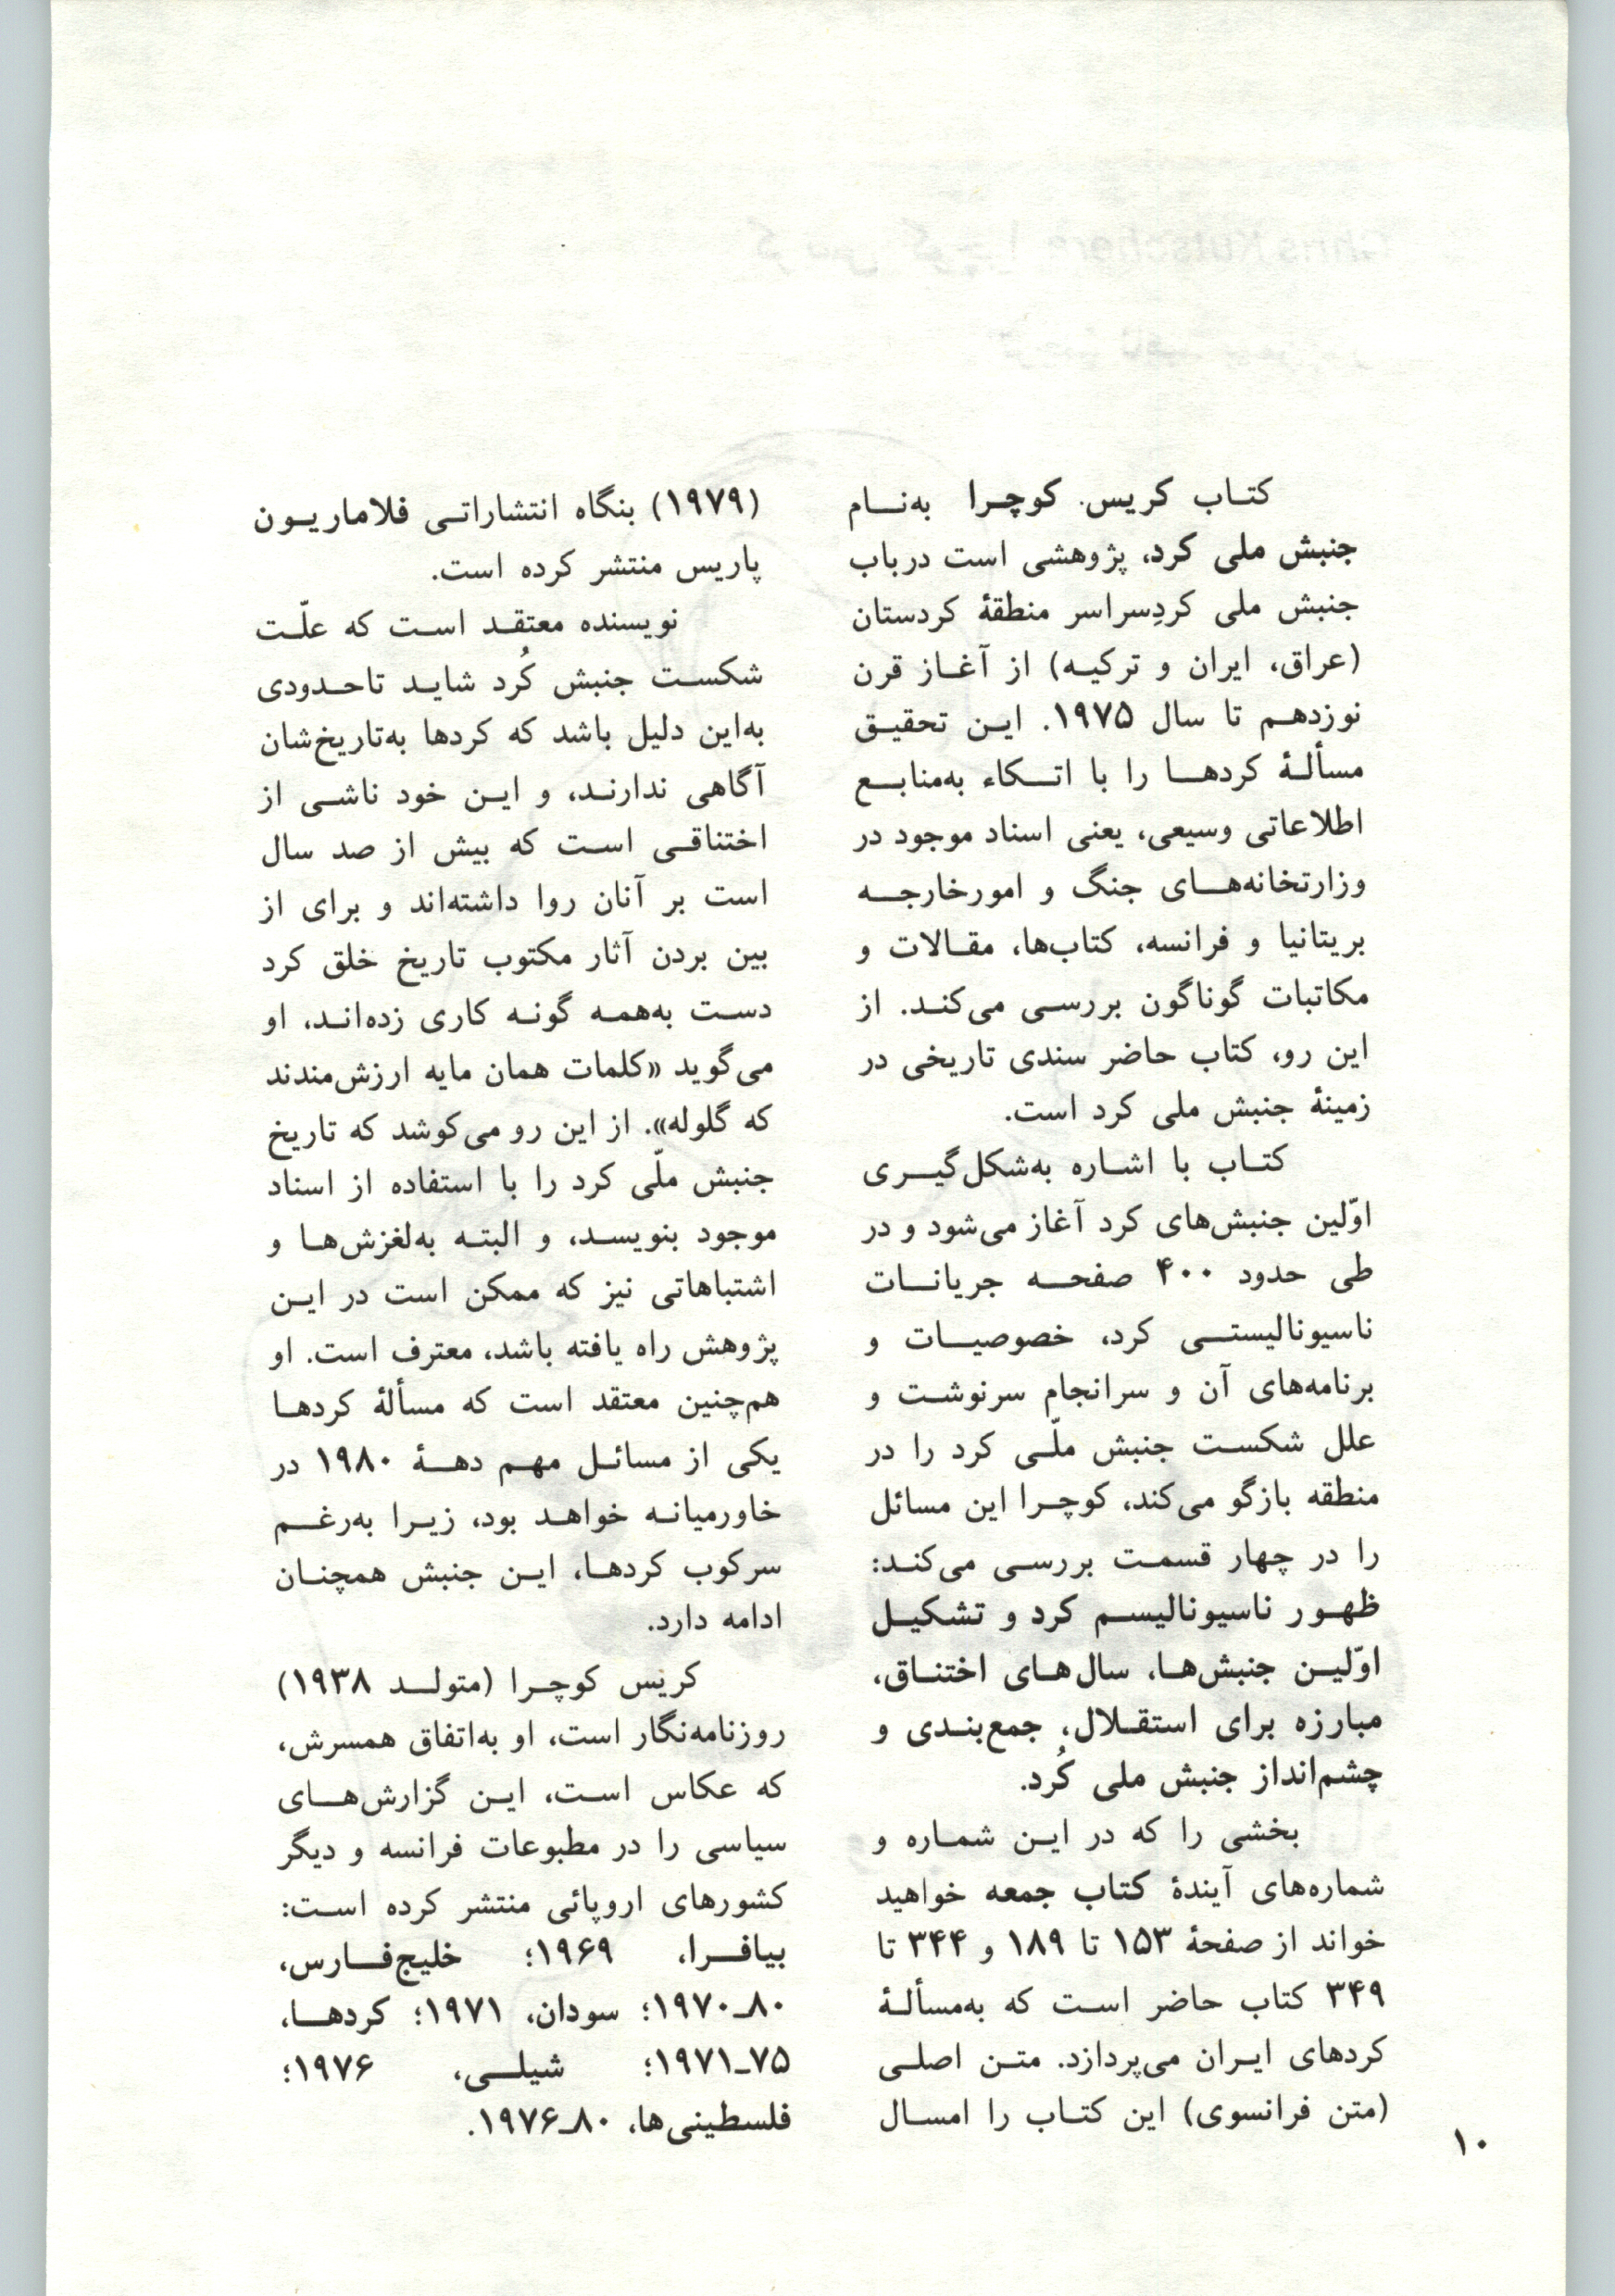 کتاب کریس. کوچرا به‌نام
جنبش ملی کرد، پژوهشی است درباب
جنبش ملی کردِسراسر منطقهٔ کردستان
(عراق، ایران و ترکیه) از آغاز قرن
نوزدهم تا سال ۱۹۷۵. این تحقیق
مسألهٔ کردها را با اتکاء به‌منابع
اطلاعاتی وسیعی، یعنی اسناد موجود در
وزارتخانه‌های جنگ و امورخارجه
بریتانیا و فرانسه، کتاب‌ها، مقالات و
مکاتبات گوناگون بررسی می‌کند. از
این رو، کتاب حاضر سندی تاریخی در
زمینهٔ جنبش ملی کرد است.
کتاب با اشاره به‌شکل‌گیری
اوّلین جنبش‌های کرد آغاز می‌شود و در
طی حدود ۴۰۰ صفحه جریانات
ناسیونالیستی کرد، خصوصیات و
برنامه‌های آن و سرانجام سرنوشت و
علل شکست جنبش ملّی کرد را در
منطقه بازگو می‌کند، کوچرا این مسائل
را در چهار قسمت بررسی می‌کند:
ظهور ناسیونالیسم کرد و تشکیل
اوّلین جنبش‌ها، سال‌های اختناق،
مبارزه برای استقلال، جمع‌بندی و
چشم‌انداز جنبش ملی کُرد.
بخشی را که در این شماره و
شماره‌های آیندهٔ کتاب جمعه خواهید
خواند از صفحهٔ ۱۵۳ تا ۱۸۹ و ۳۴۴ تا
۳۴۹ کتاب حاضر است که به‌مسألهٔ
کردهای ایران می‌پردازد. متن اصلی
(متن فرانسوی) این کتاب را امسال
(۱۹۷۹) بنگاه انتشاراتی فلاماریون
پاریس منتشر کرده است.
نویسنده معتقد است که علّت
شکست جنبش کُرد شاید تاحدودی
به‌این دلیل باشد که کردها به‌تاریخ‌شان
آگاهی ندارند، و این خود ناشی از
اختناقی است که بیش از صد سال
است بر آنان روا داشته‌اند و برای از
بین بردن آثار مکتوب تاریخ خلق کرد
دست به‌همه گونه کاری زده‌اند، او
می‌گوید «کلمات همان مایه ارزش‌مندند
که گلوله». از این رو می‌کوشد که تاریخ
جنبش ملّی کرد را با استفاده از اسناد
موجود بنویسد، و البته به‌لغزش‌ها و
اشتباهاتی نیز که ممکن است در این
پژوهش راه یافته باشد، معترف است. او
هم‌چنین معتقد است که مسألهٔ کردها
یکی از مسائل مهم دههٔ ۱۹۸۰ در
خاورمیانه خواهد بود، زیرا به‌رغم
سرکوب کردها، این جنبش همچنان
ادامه دارد.
کریس کوچرا (متولد ۱۹۳۸)
روزنامه‌نگار است، او به‌اتفاق همسرش،
که عکاس است، این گزارش‌های
سیاسی را در مطبوعات فرانسه و دیگر
کشورهای اروپائی منتشر کرده است:
بیافرا، ۱۹۶۹؛ خلیج‌فارس،
۸۰ـ۱۹۷۰؛ سودان، ۱۹۷۱؛ کردها،
۷۵ـ۱۹۷۱؛ شیلی، ۱۹۷۶؛
فلسطینی‌ها، ۸۰ـ۱۹۷۶.
۱۰